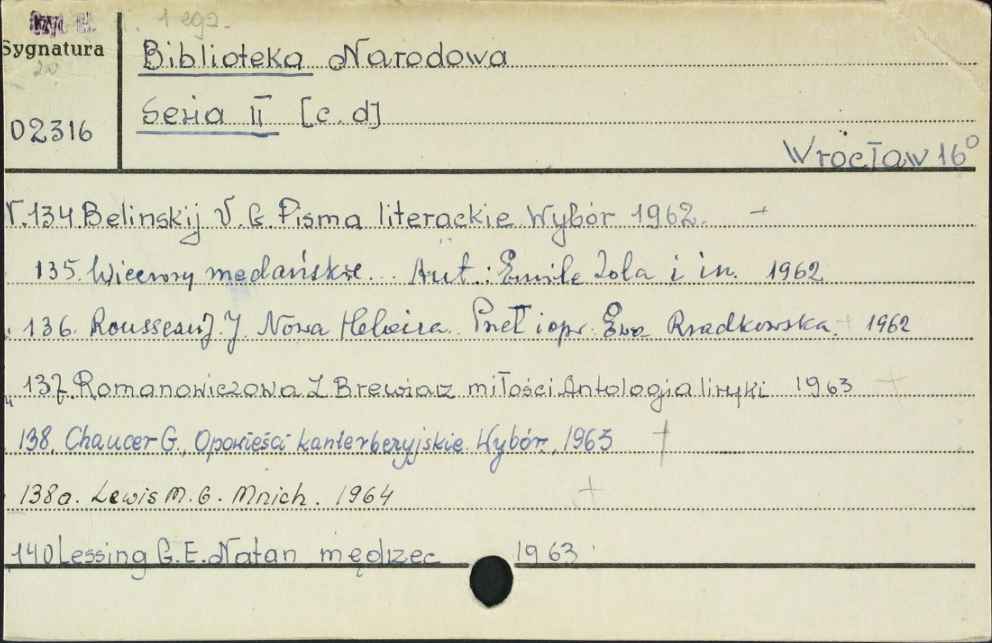 Czyt. Gł. 1 egz.
Sygnatura
20
02316
Biblioteka Narodowa
Seria II [c. d]
Wrocław 16°
N. 134 Belinskij V. G. Pisma literackie Wybór 1962. -
135. Wieczory medańskie... Aut.: Emile Zola i in. 1962
136. Rousseau J. J. Nowa Heloiza. Przeł i opr. Ewa Rzadkowska. + 1962
137. Romanowiczowa Z Brewiarz miłości Antologia liryki 1963 +
138. Chaucer G., Opowieści kanterberyjskie. Wybór. 1963 +
138a. Lewis M. G. Mnich. 1964 +
140 Lessing G. E. Natan mędrzec 1963